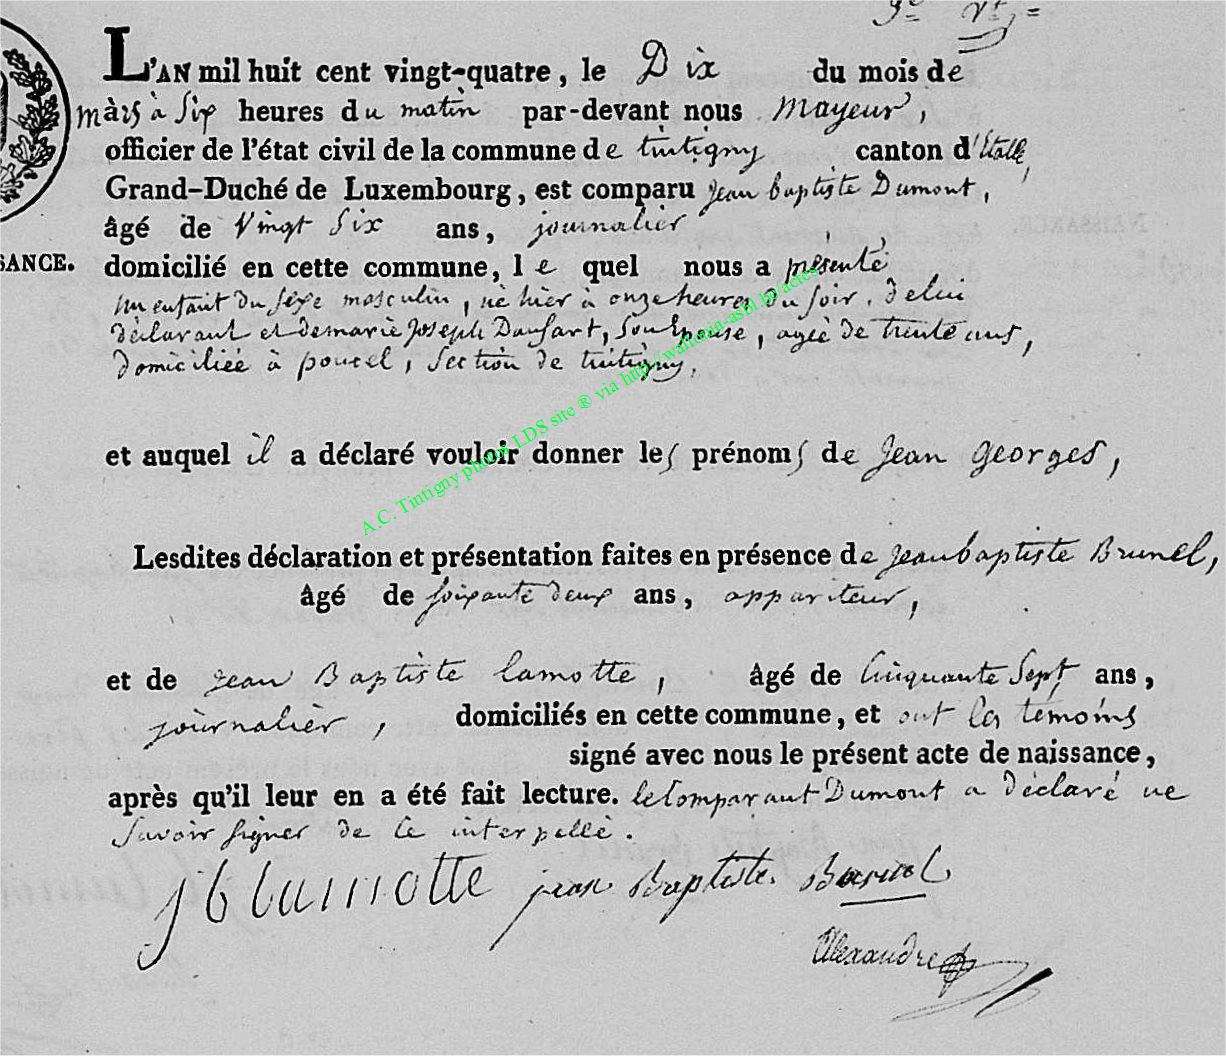 L'AN mil huit cent vingt-quatre, le Dix du mois de
mars à six heures du matin par-devant nous Mayeur,
officier de l'état civil de la commune de tintigny canton d'Etalle,
Grand-Duché de Luxembourg, est comparu Jean baptiste Dumont,
âgé de Vingt Six ans, journalier
SANCE.
domicilié en cette commune, le quel nous a présenté
un enfant du sexe masculin, né hier à onze heures du soir, de lui
déclarant et de marie Joseph Dansart, Son Epouse, agée de trente ans,
domiciliée à poncel, section de tintigny,
A.C. Tintigny photos LDS site ® via http://wallonia-asbl.be/actes
et auquel il a déclaré vouloir donner les prénoms de Jean Georges,
Lesdites déclaration et présentation faites en présence de Jean baptiste Brunel,
âgé de soixante deux ans, appariteur,
et de Jean Baptiste lamotte, âgé de Cinquante Sept ans,
journalier, domiciliés en cette commune, et ont les témoins
signé avec nous le présent acte de naissance,
après qu'il leur en a été fait lecture. le Comparant Dumont a déclaré ne
Savoir signer de ce interpellé.
J b lamotte jean Baptiste Brunel
Alexandre